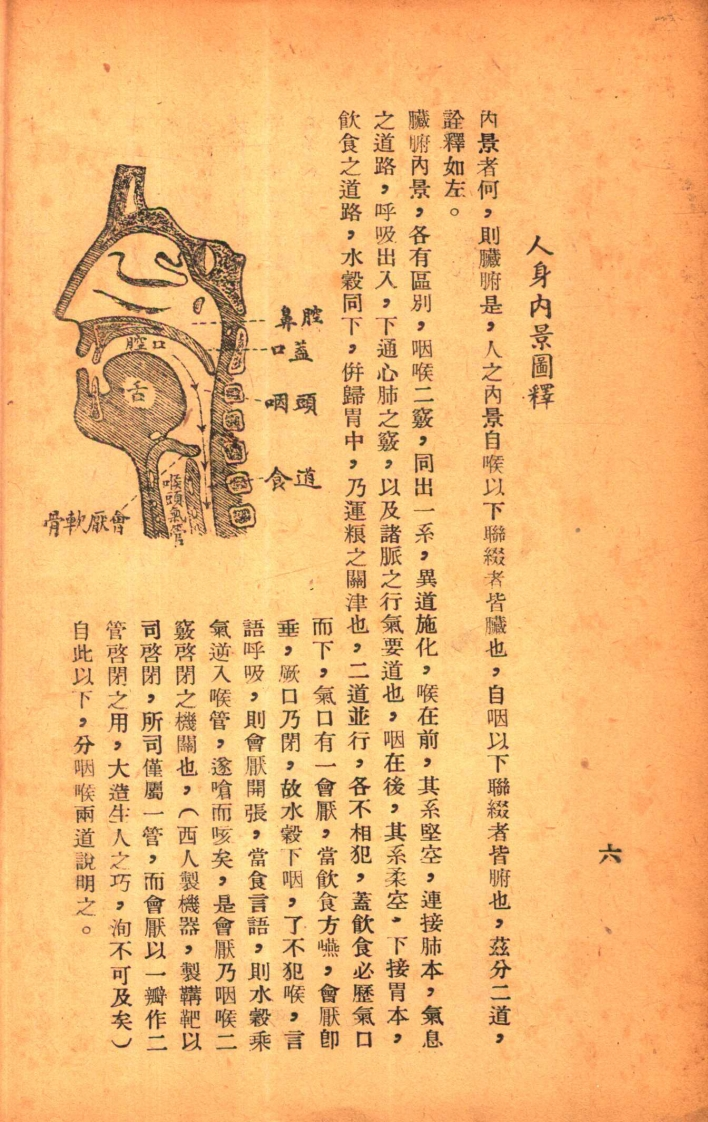 人身內景圖釋
內景者何，則臟腑是，人之內景自喉以下聯綴者皆臟也，自咽以下聯綴者皆腑也，茲分二道，
詮釋如左。
臟腑內景，各有區別，咽喉二竅，同出一系，異道施化，喉在前，其系堅空，連接肺本，氣息
之道路，呼吸出入，下通心肺之竅，以及諸脈之行氣要道也，咽在後，其系柔空，下接胃本，
飲食之道路，水穀同下，併歸胃中，乃運粮之關津也，二道並行，各不相犯，蓋飲食必歷氣口
而下，氣口有一會厭，當飲食方嚥，會厭卽
垂，厥口乃閉，故水穀下咽，了不犯喉，言
語呼吸，則會厭開張，當食言語，則水穀乘
氣逆入喉管，遂嗆而咳矣，是會厭乃咽喉二
竅啓閉之機關也，（西人製機器，製鞲靶以
司啓閉，所司僅屬一管，而會厭以一瓣作二
管啓閉之用，大造生人之巧，洵不可及矣）
自此以下，分咽喉兩道說明之。
鼻腔
口蓋
咽頭
食道
腔口
舌
喉頭氣管
骨軟厭會
六